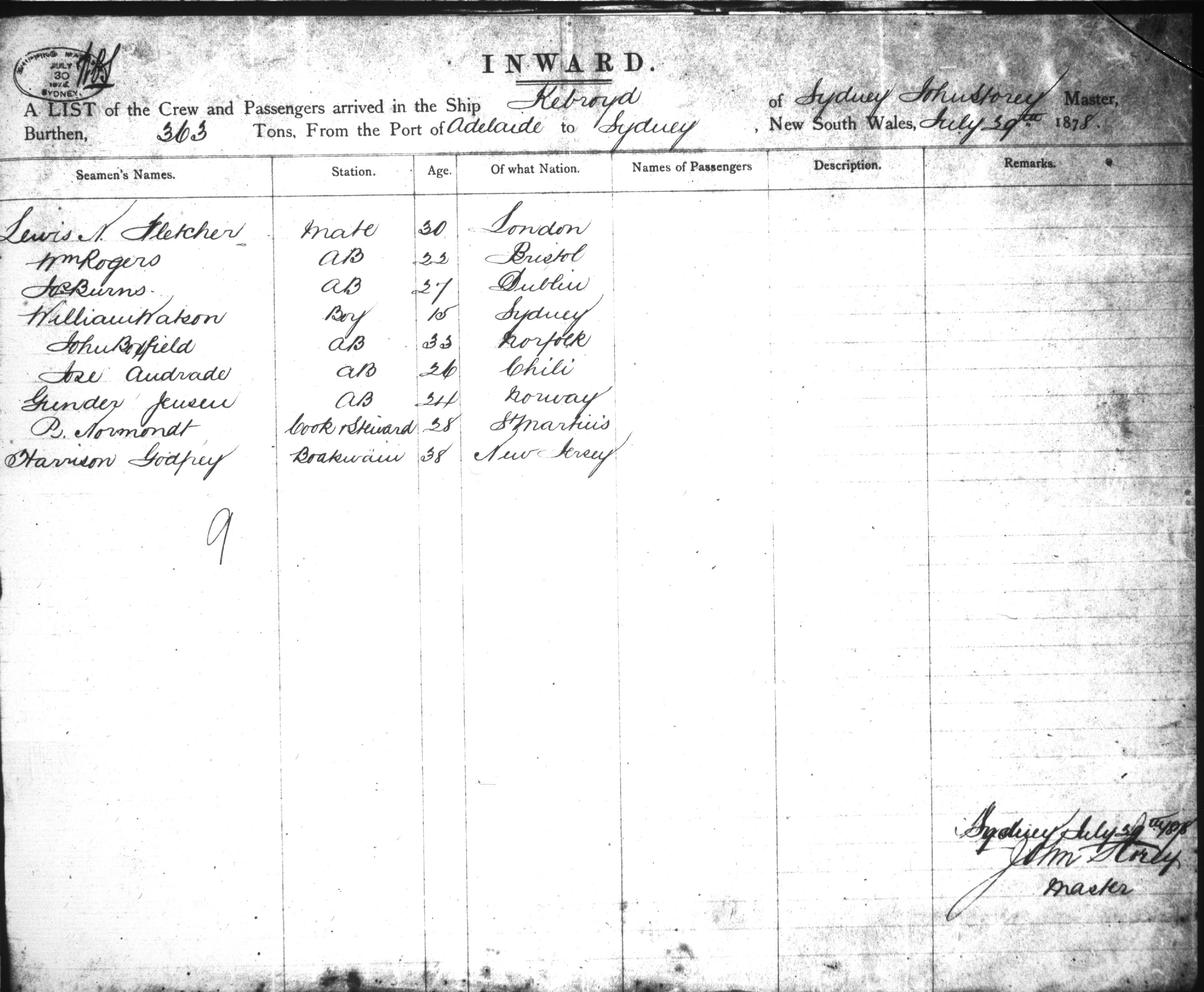 SHIPPING MA
JULY
30
1878
SYDNEY
INWARD.
A LIST of the Crew and Passengers arrived in the Ship Kebroyd of Sydney John Storey Master,
Burthen, 363 Tons, From the Port of Adelaide to Sydney , New South Wales, July 29th 1878.
Seamen's Names. Station. Age. Of what Nation. Names of Passengers Description. Remarks.
Lewis N. Fletcher Mate 30 London
Wm Rogers AB 22 Bristol
Burns. AB 27 Dublin
William Watson Boy 15 Sydney
John AB 33 Norfolk
Jose Andrade AB 26 Chili
Gunder Jensen AB 24 Norway
P. Normondt Cook & Steward 28 St Martins
Harrison Godfrey Boatswain 38 New Jersey
9
Sydney July 29th 1878
John Storey
Master